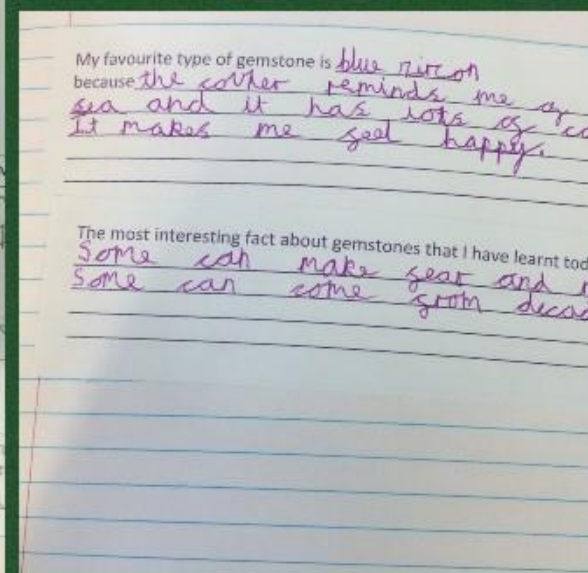 My favourite type of gemstone is blue zircon
because the colher reminds me of
sea and it has lots of co
It makes me feel happy.
The most interesting fact about gemstones that I have learnt tod
Some can make fear and
Some can come from decad